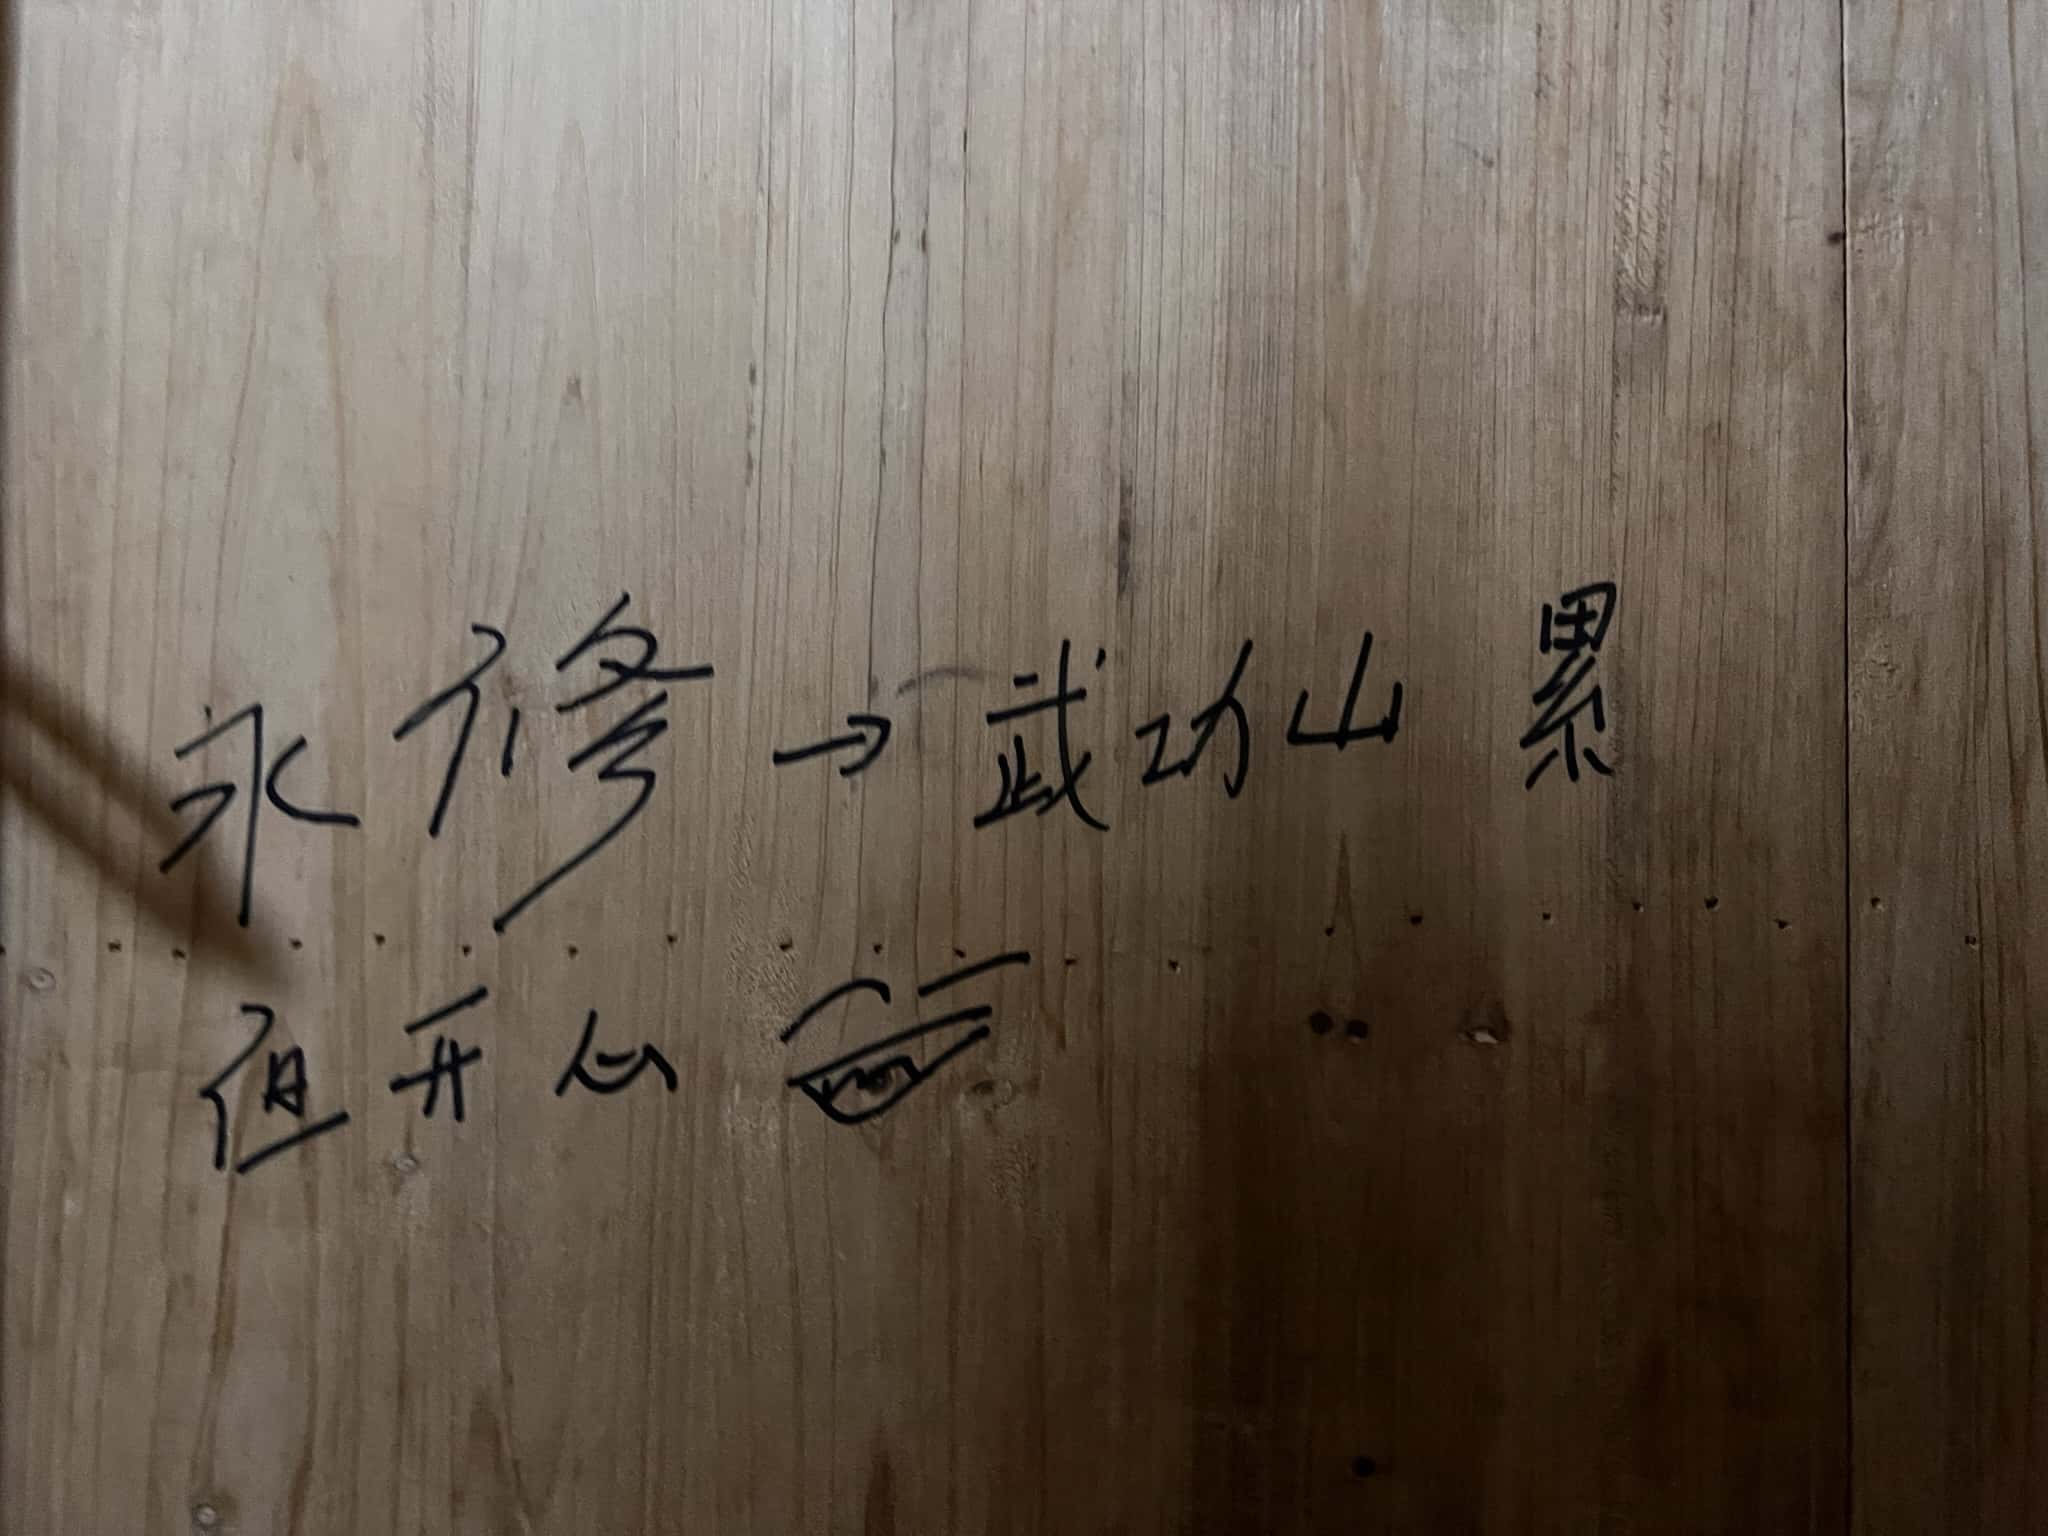 永修→武功山 累
但开心